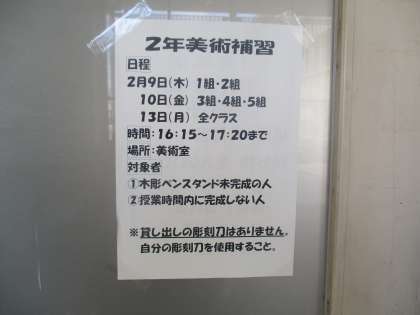 2年美術補習
日程
2月9日(木) 1組・2組
10日(金) 3組・4組・5組
13日(月) 全クラス
時間:16:15~17:20まで
場所:美術室
対象者
①木彫ペンスタンド未完成の人
②授業時間内に完成しない人
※貸し出しの彫刻刀はありません。
自分の彫刻刀を使用すること。